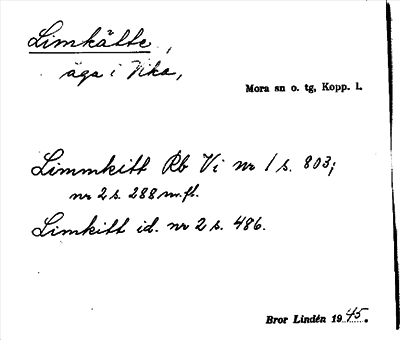 Limkätte,
äga i Vika,
Mora sn o. tg, Kopp. l.
Limmkitt Rb Vi nr 1 s. 803;
nr 2 s. 288 m.fl.
Limkitt id. nr 2 s. 486.
Bror Lindén 1945.